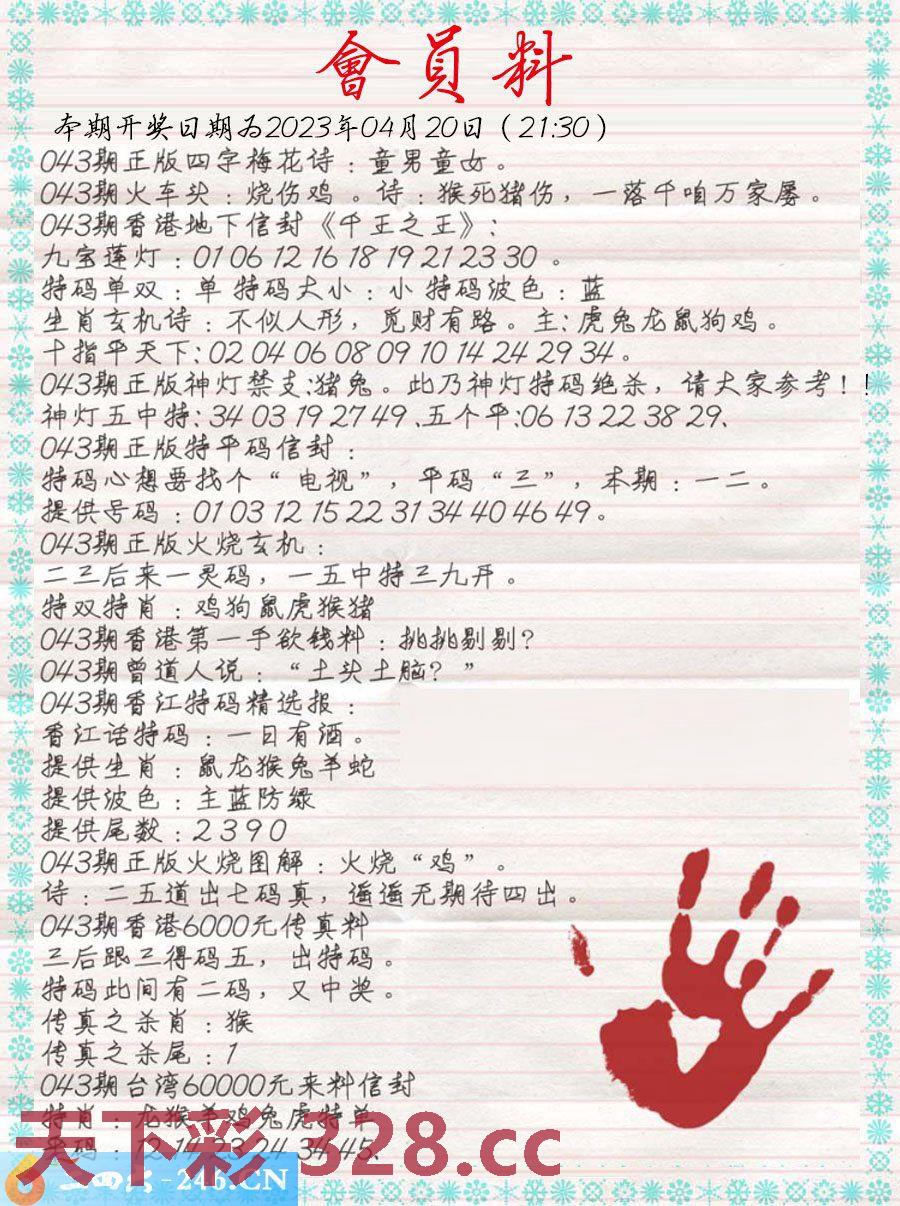 會員料
本期开奖日期为2023年04月20日（21:30）
043期正版四字梅花诗：童男童女。
043期火车头：烧伤鸡 。诗：猴死猪伤，一落千咱万家屡。
043期香港地下信封《千王之王》：
九宝莲灯：01 06 12 16 18 19 21 23 30 。
特码单双：单 特码大小：小 特码波色：蓝
生肖玄机诗：不似人形，觅财有路。主：虎兔龙鼠狗鸡。
十指平天下：02 04 06 08 09 10 14 24 29 34。
043期正版神灯禁支：猪兔。此乃神灯特码绝杀，请大家参考！！
神灯五中特：34 03 19 27 49 、五个平：06 13 22 38 29、
043期正版特平码信封：
特码心想要找个“ 电视”，平码“三”，本期：一二。
提供号码：01 03 12 15 22 31 34 40 46 49。
043期正版火烧玄机：
二三后来一灵码，一五中特三九开。
特双特肖：鸡狗鼠虎猴猪
043期香港第一手欲钱料：挑挑剔剔？
043期曾道人说：“土头土脑？”
043期香江特码精选报：
香江话特码：一日有酒。
提供生肖：鼠龙猴兔羊蛇
提供波色：主蓝防绿
提供尾数：2 3 9 0
043期正版火烧图解：火烧“鸡”。
诗：二五道出七码真，遥遥无期待四出。
043期香港6000元传真料
三后跟三得码五，出特码。
特码此间有二码，又中奖。
传真之杀肖：猴
传真之杀尾：1
043期台湾60000元来料信封
特肖：龙猴羊鸡兔虎特单
码：12 14 23 24 34 45、
天下彩 328.cc
二四六-246.CN